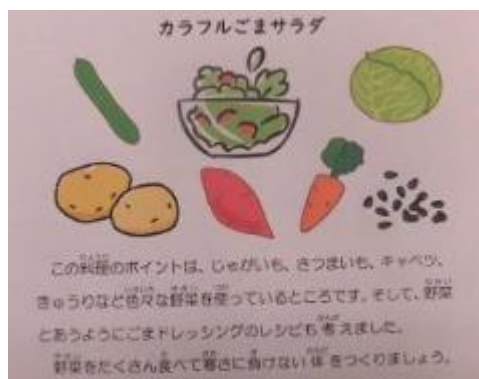 カラフルごまサラダ
この料理のポイントは、じゃがいも、さつまいも、キャベツ、
きゅうりなど色々な野菜を使っているところです。そして、野菜
とあうようにごまドレッシングのレシピも考えました。
野菜をたくさん食べて寒さに負けない体をつくりましょう。